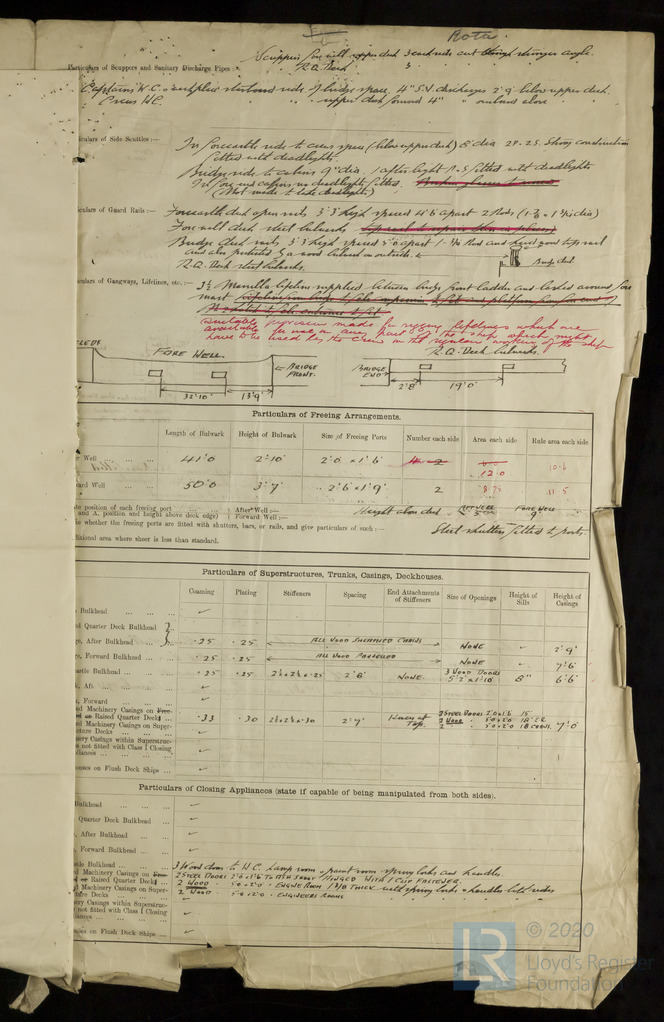 Rota.
Scuppers fore well upper deck 3 each side cut through stringer angle
Particulars of Scuppers and Sanitary Discharge Pipes :— R.Q. Deck 3
Captains W.C. starboard side of bridge space. 4" S.V. discharges 2'9" below upper deck
Crews W.C. upper deck forward 4" outlined above
culars of Side Scuttles :—
In forecastle side to crew space (below upper deck) 8" dia Strong construction
fitted with deadlights.
Bridge side to cabins 9" dia. 1 after light fitted with deadlights
In fore end cabins no deadlights fitted.
(Not made to take deadlights)
culars of Guard Rails :—
Forecastle deck open rails 3'3" high spaced 4'6 apart 2 Rods
Fore well deck steel bulwarks
Bridge deck rails 3'3 high spaced 5'0 apart and wood top rail
and also protected by a wood bulwark on outside
R.Q. Deck steel bulwarks.
Bridge deck
culars of Gangways, Lifelines, etc. :—
3½ Manilla lifeline supplied between bridge front ladder and lashed around fore
mast
suitable provision made for rigging lifelines which are
available for use in any part of the ship which might
have to be used by the crew in the regular working of the ship
R.Q. Deck bulwarks.
FORE WELL.
BRIDGE FRONT.
BRIDGE END
32'10"
13'9"
2'8"
19'0"
Particulars of Freeing Arrangements.
Length of Bulwark Height of Bulwark Size of Freeing Ports Number each side Area each side Rule area each side
r Well 41'0 2'10" 2'0 x 1'6 2 12.0 10.6
ard Well 50'0 3'7" 2'6 x 1'9" 2 8.75 11.5
te position of each freeing port
and A. position and height above deck edge) After Well :— Forward Well :—
Height above deck AFT WELL FORE WELL 9"
te whether the freeing ports are fitted with shutters, bars, or rails, and give particulars of such :— Steel shutters fitted to ports.
ditional area where sheer is less than standard.
Particulars of Superstructures, Trunks, Casings, Deckhouses.
Coaming Plating Stiffeners Spacing End Attachments of Stiffeners Size of Openings Height of Sills Height of Casings
Bulkhead ✓
d Quarter Deck Bulkhead
ge, After Bulkhead .25 .25 ALL WOOD SHEATHED CABINS NONE ✓ 2'9"
e, Forward Bulkhead .25 .25 ALL WOOD PANELLED NONE ✓ 7'6
astle Bulkhead .25 .25 2½x2½x.25 2'8" NONE 3 WOOD DOORS 5'2" x 1'10" 8" 6'6
k, Aft ✓
k, Forward ✓
d Machinery Casings on
Raised Quarter Decks .33 .30 2½x2½x.30 2'9" Knees at Top. 2 STEEL DOORS 2'0x1'6 15" 7'0"
2 WOOD 5'0x2'0 18"
2 " 5'0x2'0 18"
ed Machinery Casings on Super-
cture Decks ✓
inery Casings within Superstruc-
s not fitted with Class I Closing
pliances ✓
houses on Flush Deck Ships ✓
Particulars of Closing Appliances (state if capable of being manipulated from both sides).
Bulkhead ✓
Quarter Deck Bulkhead ✓
, After Bulkhead ✓
, Forward Bulkhead ✓
stle Bulkhead 3 Wood doors to W.C. Lamp room & paint room spring locks and handles.
d Machinery Casings on 2 STEEL DOORS 2'0x1'6 TO ASH SHOOT HINGED WITH 1 CLIP FASTENER
Raised Quarter Decks 2 WOOD 5'0x2'0 - ENGINE ROOM 1⅜ THICK with spring locks & handles both sides
d Machinery Casings on Super- 2 WOOD 5'0x2'0 - ENGINEERS ROOMS
ture Decks ✓
ery Casings within Superstruc-
not fitted with Class I Closing
iances ✓
uses on Flush Deck Ships ✓
© 2020
LR
Lloyd's Register
Foundation